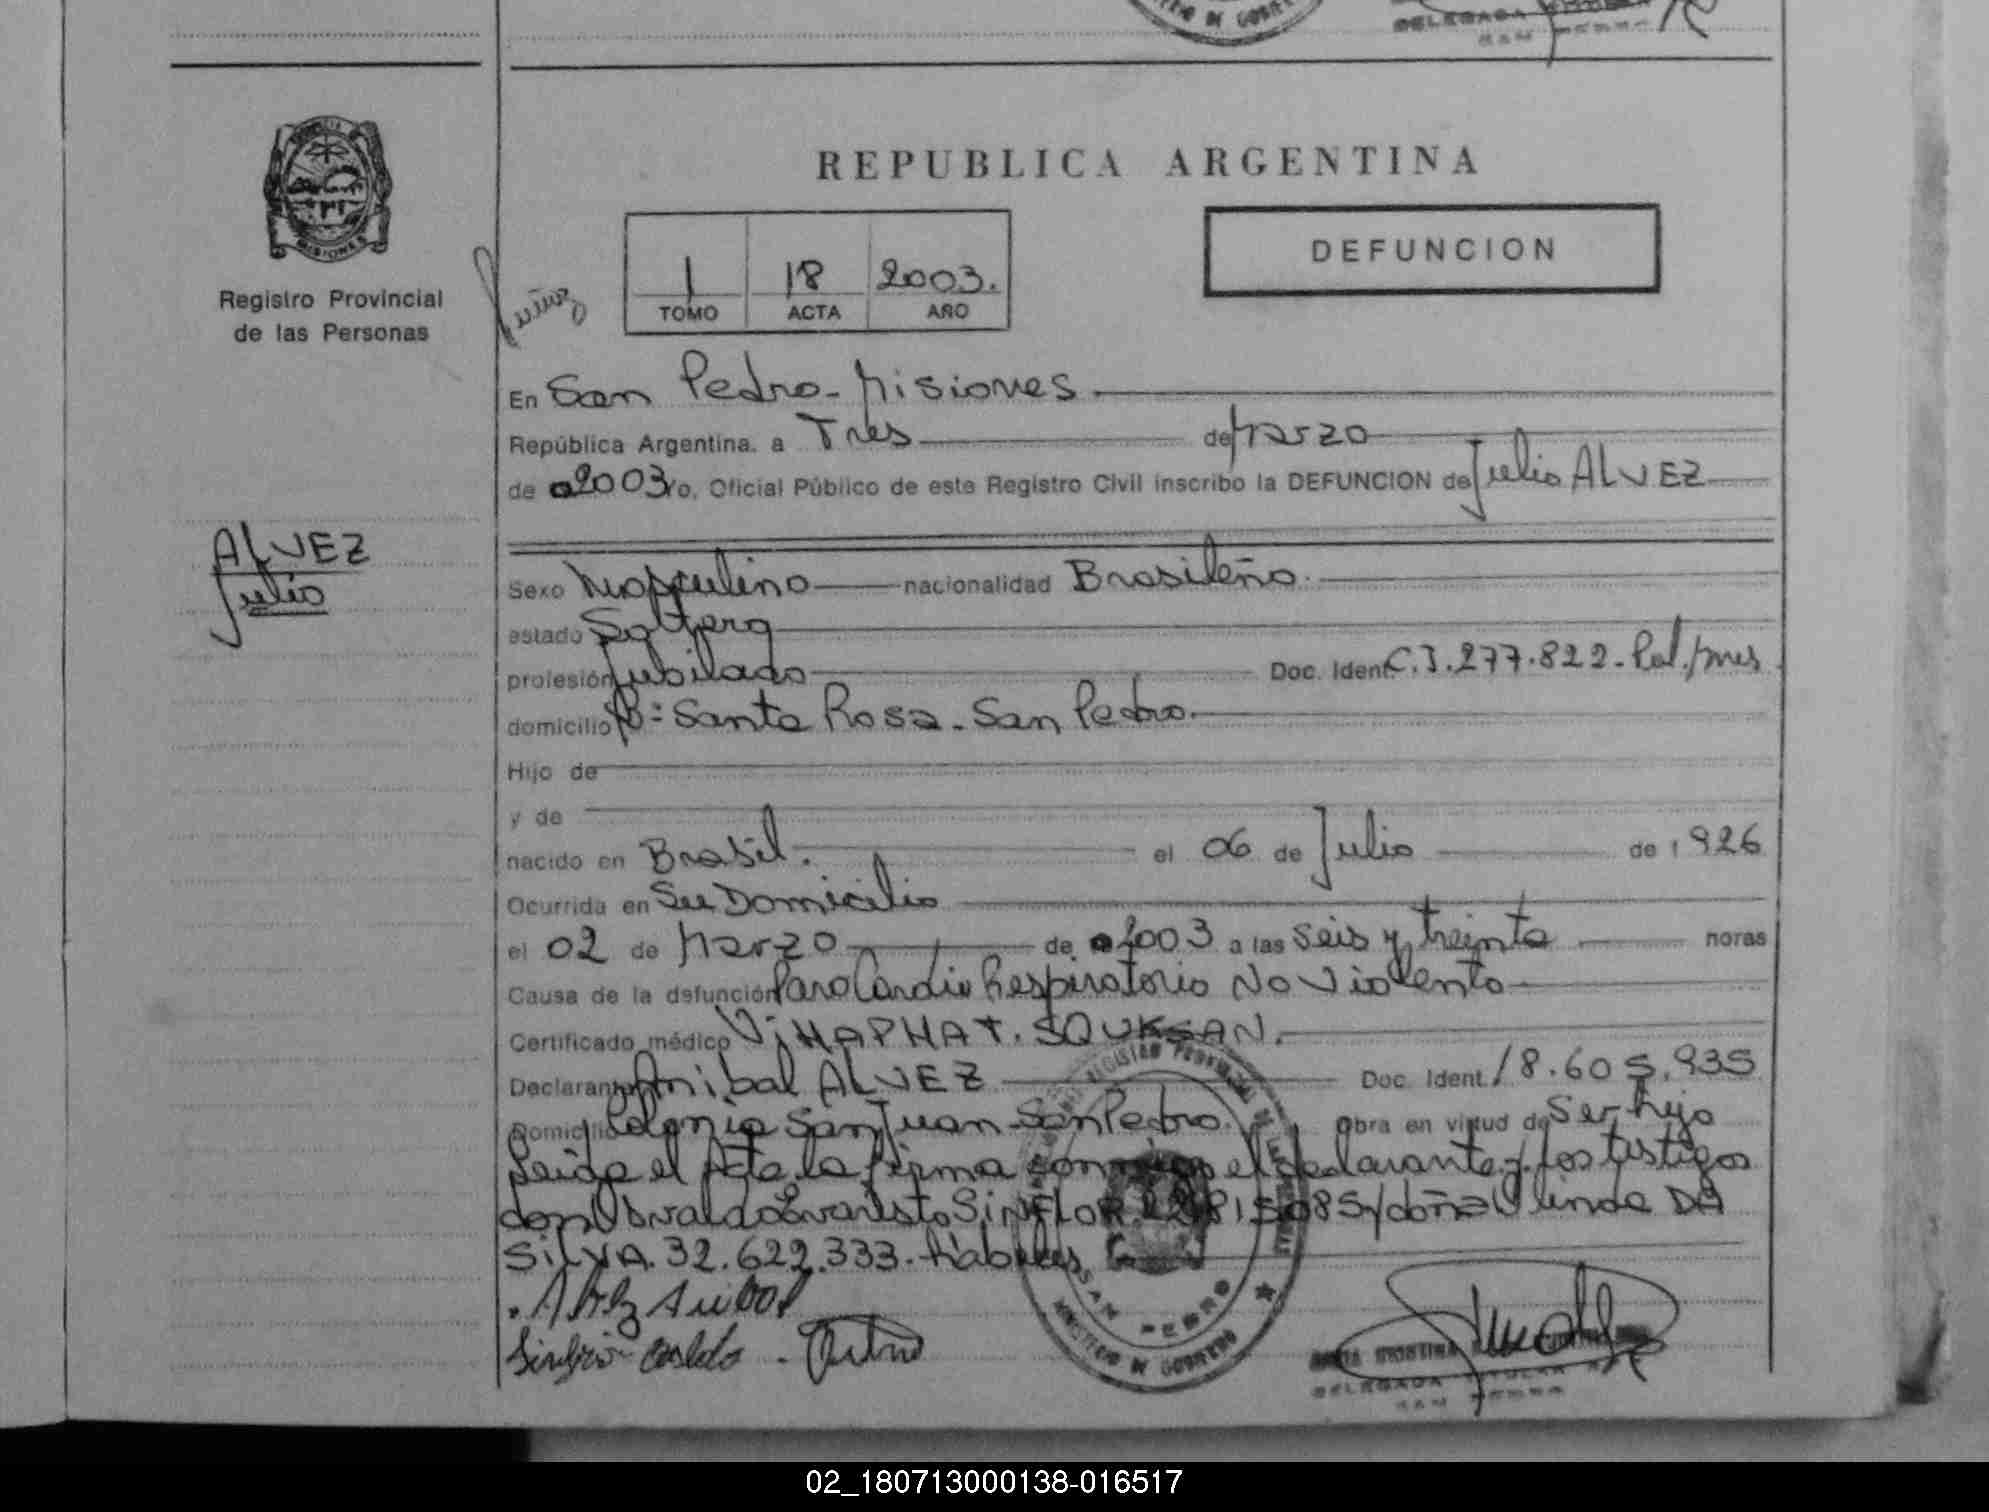 MINISTERIO DE GOBIERNO
DELEGADA TITULAR
SAN PEDRO
PROVINCIA DE
MISIONES
Registro Provincial
de las Personas
REPUBLICA ARGENTINA
DEFUNCION
1 18 2003.
TOMO ACTA AÑO
En San Pedro - Misiones.
República Argentina. a Tres de Marzo
de 2003 Yo, Oficial Público de este Registro Civil inscribo la DEFUNCION de Julio ALVEZ
ALVEZ
Julio
Sexo Masculino nacionalidad Brasileño.
estado Soltero
profesión Jubilado Doc. Ident. C.I. 277.822. Pol. Mnes
domicilio Bº: Santa Rosa - San Pedro.
Hijo de
y de
nacido en Brasil. el 06 de Julio de 1926
Ocurrida en Su Domicilio
el 02 de Marzo de 2003 a las seis y treinta horas
Causa de la defunción Paro Cardio Respiratorio No Violento
Certificado médico ViHAPHAT. SOUKSAN.
Declarante Anibal ALVEZ Doc. Ident. 18.605.935
Domicilio Colonia San Juan - San Pedro. Obra en virtud de Ser hijo
Leida el Acta la firma conmigo el declarante y los testigos
don Osvaldo Evaristo SINFLOR y doña Olinda DA
SILVA. 32.622.333. hábiles.
Alvez Anibal
REGISTRO PROVINCIAL DE LAS PERSONAS
SAN PEDRO
MINISTERIO DE GOBIERNO
DELEGADA TITULAR
SAN PEDRO
02_180713000138-016517